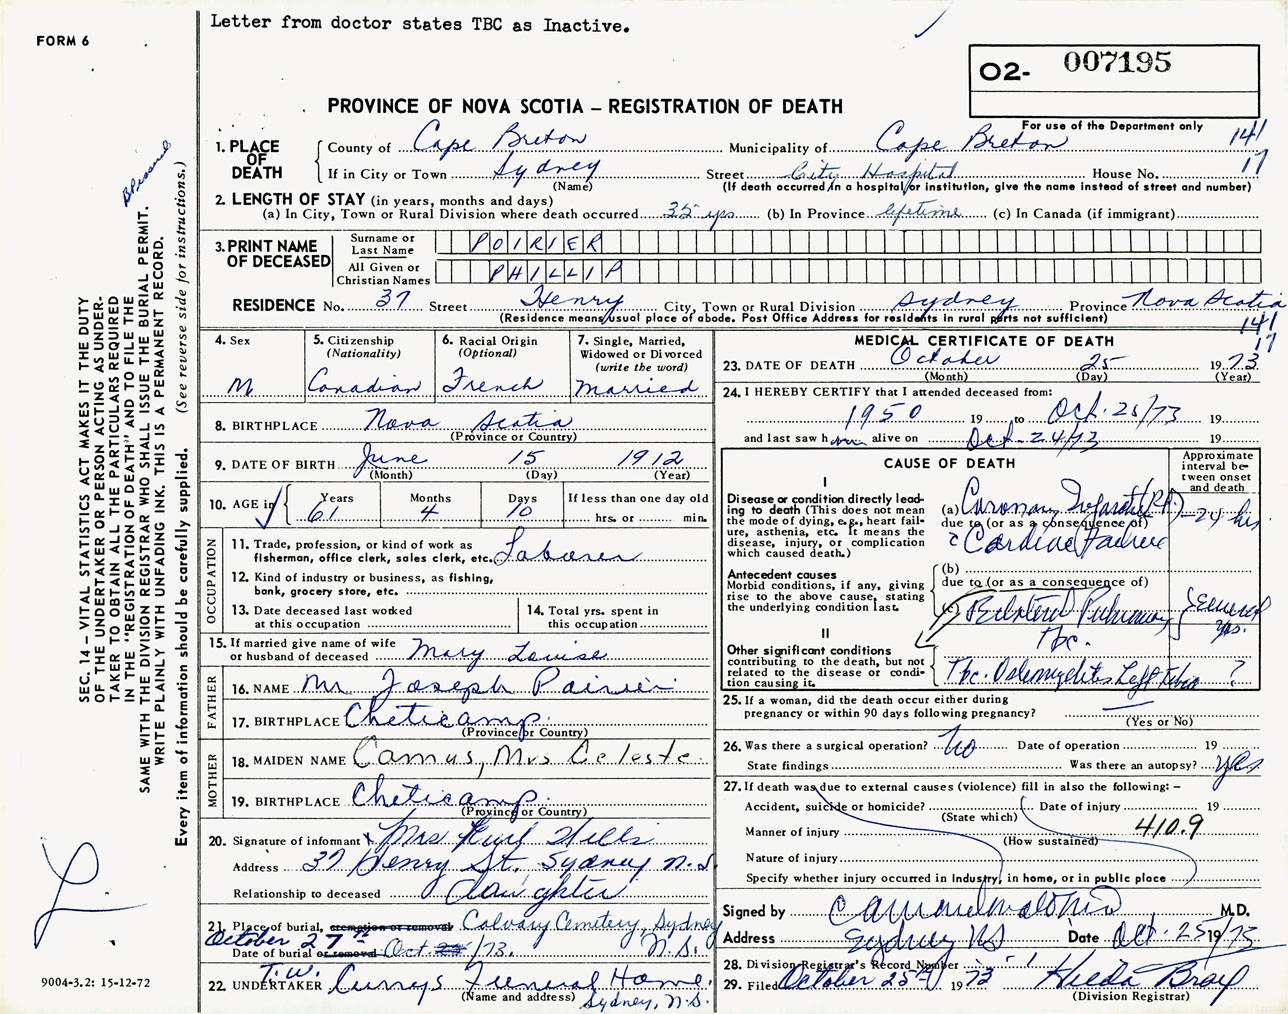 Letter from doctor states TBC as Inactive.
FORM 6
O2- 007195
For use of the Department only
PROVINCE OF NOVA SCOTIA – REGISTRATION OF DEATH
141
17
1. PLACE OF DEATH
County of Cape Breton Municipality of Cape Breton
If in City or Town Sydney Street City Hospital House No.
(Name) (If death occurred in a hospital or institution, give the name instead of street and number)
2. LENGTH OF STAY (in years, months and days)
(a) In City, Town or Rural Division where death occurred 35 yrs. (b) In Province lifetime (c) In Canada (if immigrant)
3. PRINT NAME OF DECEASED
Surname or Last Name POIRIER
All Given or Christian Names PHILLIP
RESIDENCE No. 37 Street Henry City, Town or Rural Division Sydney Province Nova Scotia
(Residence means usual place of abode. Post Office Address for residents in rural parts not sufficient)
141
17
4. Sex M
5. Citizenship (Nationality) Canadian
6. Racial Origin (Optional) French
7. Single, Married, Widowed or Divorced (write the word) Married
8. BIRTHPLACE Nova Scotia
(Province or Country)
9. DATE OF BIRTH June 15 1912
(Month) (Day) (Year)
10. AGE in Years Months Days If less than one day old
61 4 10 hrs. or min.
OCCUPATION
11. Trade, profession, or kind of work as
fisherman, office clerk, sales clerk, etc. Laborer
12. Kind of industry or business, as fishing,
bank, grocery store, etc.
13. Date deceased last worked
at this occupation
14. Total yrs. spent in
this occupation
15. If married give name of wife
or husband of deceased Mary Louise
FATHER
16. NAME Mr Joseph Poirier
17. BIRTHPLACE Cheticamp.
(Province or Country)
MOTHER
18. MAIDEN NAME Camus, Mrs Celeste
19. BIRTHPLACE Cheticamp.
(Province or Country)
20. Signature of informant x Mrs Hills
Address 37 Henry St. Sydney N.S.
Relationship to deceased daughter
21. Place of burial, cremation or removal Calvary Cemetery, Sydney
October 27th N.S.
Date of burial or removal Oct. /73.
22. UNDERTAKER T.W. Currys Funeral Home.
(Name and address) Sydney, N.S.
MEDICAL CERTIFICATE OF DEATH
23. DATE OF DEATH October 25 1973
(Month) (Day) (Year)
24. I HEREBY CERTIFY that I attended deceased from:
1950 19 to Oct. 25/73 19
and last saw him alive on Oct - 24/73 19
CAUSE OF DEATH
Approximate interval between onset and death
I
Disease or condition directly leading to death (This does not mean
the mode of dying, e.g., heart failure, asthenia, etc. It means the
disease, injury, or complication
which caused death.)
(a) Coronary Infarct - 24 hrs
due to (or as a consequence of)
Cardiac Failure
Antecedent causes
Morbid conditions, if any, giving
rise to the above cause, stating
the underlying condition last.
(b)
due to (or as a consequence of)
(c) Bilateral Pulmonary Tbc. Several yrs.
II
Other significant conditions
contributing to the death, but not
related to the disease or condition causing it.
Tbc. Osteomyelitis Left Tibia ?
25. If a woman, did the death occur either during
pregnancy or within 90 days following pregnancy?
(Yes or No)
26. Was there a surgical operation? No Date of operation 19
State findings Was there an autopsy? yes
27. If death was due to external causes (violence) fill in also the following: –
Accident, suicide or homicide? Date of injury 19
(State which)
Manner of injury 410.9
(How sustained)
Nature of injury
Specify whether injury occurred in industry, in home, or in public place
Signed by M.D.
Address Sydney NS Date Oct. 25 1973
28. Division Registrar's Record Number
29. Filed October 25th 1973 Hilda Bray
(Division Registrar)
SEC. 14 – VITAL STATISTICS ACT MAKES IT THE DUTY
OF THE UNDERTAKER OR PERSON ACTING AS UNDERTAKER TO OBTAIN ALL THE PARTICULARS REQUIRED
IN THE "REGISTRATION OF DEATH" AND TO FILE THE
SAME WITH THE DIVISION REGISTRAR WHO SHALL ISSUE THE BURIAL PERMIT.
WRITE PLAINLY WITH UNFADING INK. THIS IS A PERMANENT RECORD.
Every item of information should be carefully supplied. (See reverse side for instructions.)
9004-3.2: 15-12-72